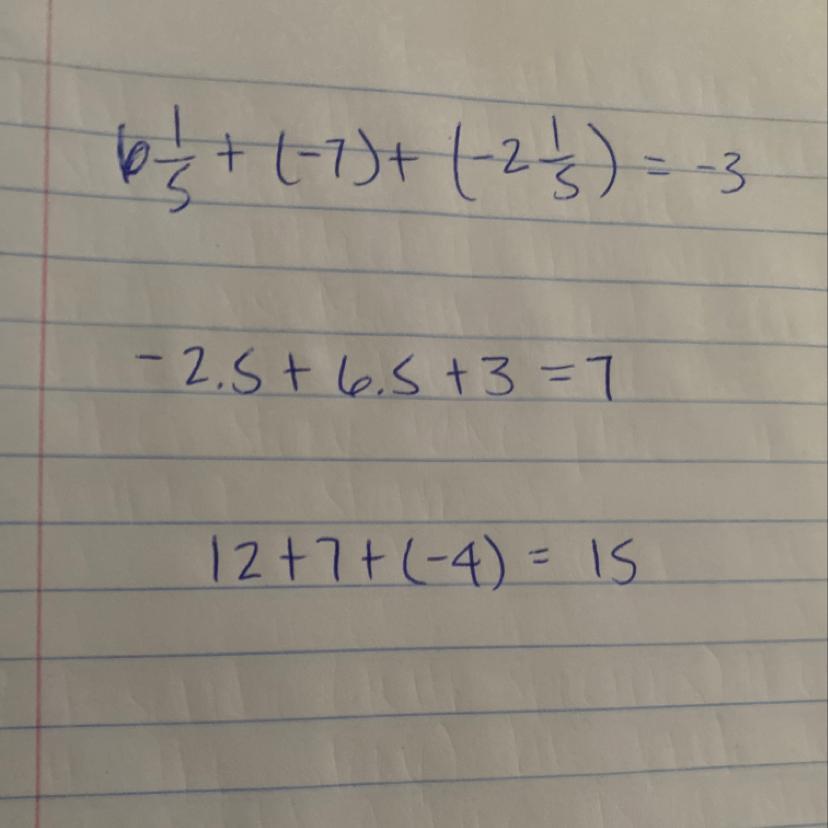 6 1/5 + (-7) + (-2 1/5) = -3
-2.5 + 6.5 + 3 = 7
12 + 7 + (-4) = 15